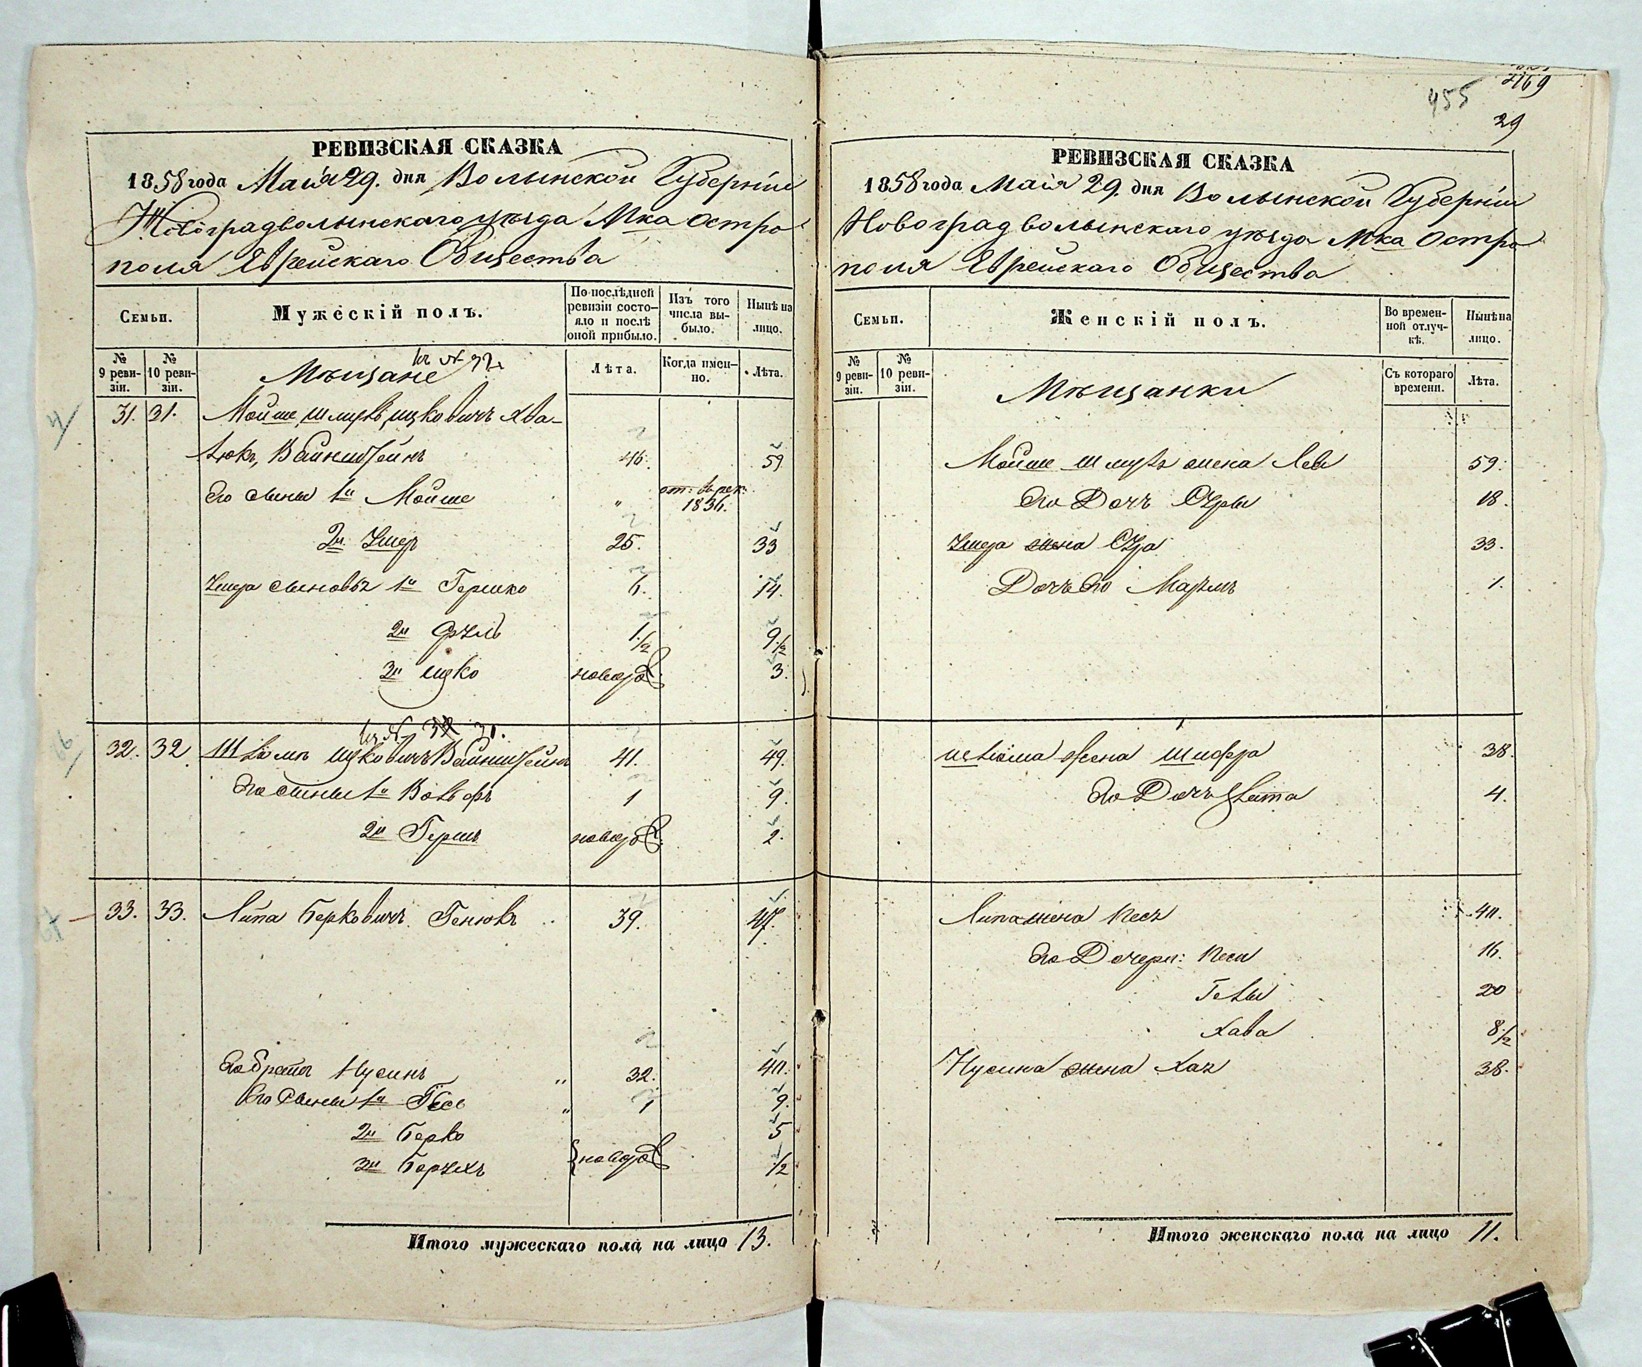 РЕВИЗСКАЯ СКАЗКА
1858 года Маія 29. дня Волынской Губерніи
Новоградволынскаго уѣзда Мка Остро
поля Еврейскаго Общества
Семьи.
Мужескій полъ.
По послѣдней ревизіи состо-яло и послѣ оной прибыло.
Изъ того числа вы-было.
Нынѣ на лицо.
№ 9 реви-зіи.
№ 10 реви-зіи.
Мѣщане
Лѣта.
Когда имен-но.
Лѣта.
31. 31. Мойше Шмуль Ицковичъ Хва-
Вайнштейнъ 46. 59
Его сыны 1й Мойше " 1836.
2й Ушер 25. 33
Ушера сыновья 1й Гершко 6. 14.
2й Фуль 1 1/2 9 1/2
3й Ицко новорож 3.
32. 32. Шлёма Ицковичъ Вайнштейнъ 41. 49.
Его сыны 1й Вольфъ 1 9.
2й Гершъ новорож 2.
33. 33. Липа Берковичъ Генювъ 39. 47.
Его братъ Нусинъ " 32. 40.
Его сыны 1й Гесь " 1 9.
2й Берко 5
3й Борухъ новорож 1/2
Итого мужескаго пола на лицо 13.
455
29
РЕВИЗСКАЯ СКАЗКА
1858 года Маія 29. дня Волынской Губерніи
Новоградволынскаго уѣзда Мка Остро
поля Еврейскаго Общества
Семьи.
Женскій полъ.
Во времен-ной отлуч-кѣ.
Нынѣ на лицо.
№ 9 реви-зіи.
№ 10 реви-зіи.
Мѣщанки
Съ котораго времени.
Лѣта.
Мойше Шмуля жена Лея 59.
Его Дочь 18.
Ушера жена 33.
Дочь Его Маріемъ 1.
Шлёма жена Шифра 38.
Его Дочь 4.
Липа жена Песя 40.
Его Дочери: 16.
20
Хава 8 1/2
Нусина жена Хая 38.
Итого женскаго пола на лицо 11.